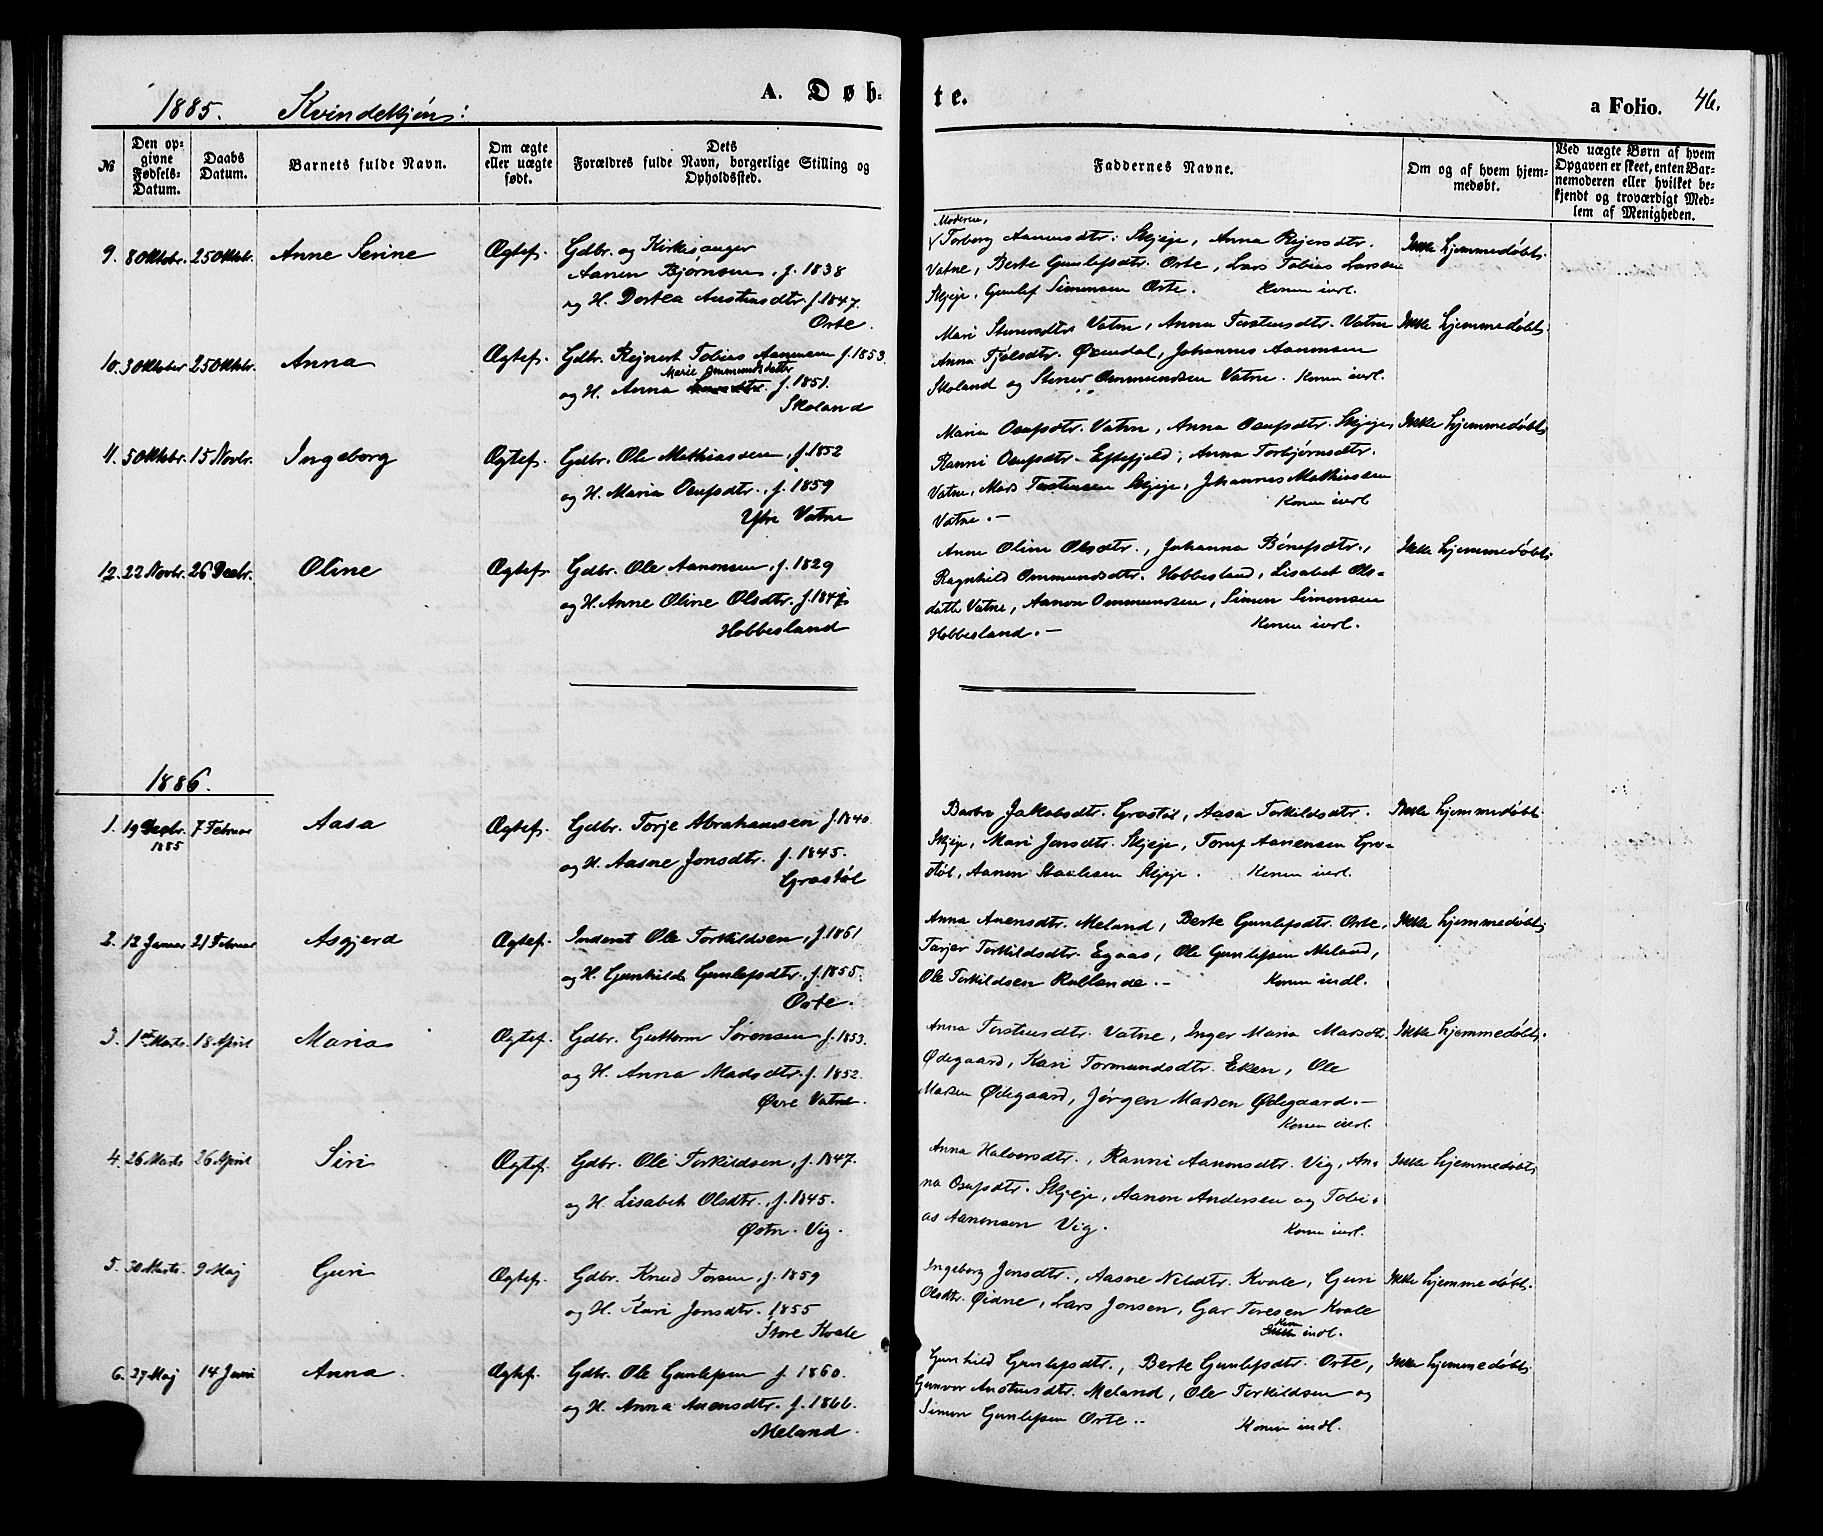 1885. Kvindekjøn:
A. Døb-
te.
a Folio. 46.
№
Den op-
givne
Fødsels-
Datum.
Daabs
Datum.
Barnets fulde Navn.
Om ægte
eller uægte
født.
Dets
Forældres fulde Navn, borgerlige Stilling og
Opholdssted.
Faddernes Navne.
Om og af hvem hjem-
medøbt.
Ved uægte Børn af hvem
Opgaven er skeet, enten Bar-
nemoderen eller hvilket be-
kjendt og troværdigt Med-
lem af Menigheden.
9. 8 Oktobr. 25 Oktbr. Anne Serine Ægtef. Gdbr. og Kirkesanger
Aanen Bjørnsen, f. 1838
og H. Dortea Austensdtr. f. 1847.
Orte.
Moderen,
Torborg Aanensdtr. Skjeje, Anna Rejersdtr.
Vatne, Berte Gunlefsdtr. Orte, Lars Tobias Larsen
Skjeje, Gunlef Simonsen Orte. Konen indl.
Ikke hjemmedøbt.
10. 3 Oktober 25 Oktbr. Anna Ægtef. Gdbr. Rejnert Tobias Aanensen f. 1853
Marie Ommundsdatter
og H. Anna f. 1851.
Skoland
Mari Stenersdtr. Vatne, Anna Torstensdtr. Vatne
Anna Tjølsdtr. Øxendal, Johannes Aanensen
Skoland og Stener Ommundsen Vatne. Konen indl.
Ikke hjemmedøbt.
11. 5 Oktobr. 15 Novbr. Ingeborg Ægtef. Gdbr. Ole Mathiassen, f. 1852
og H. Maria Osufsdtr., f. 1859
Ytre Vatne
Maria Osufsdtr. Vatne, Anna Osufsdtr. Skjeje,
Ranni Osufsdtr. Eftefjeld, Anna Torbjørnsdtr.
Vatne, Mads Torstensen Skjeje, Johannes Mathiassen
Vatne.— Konen indl
Ikke hjemmedøbt.
12. 22 Novbr. 26 Decbr. Oline Ægtef. Gdbr. Ole Aanonsen, f. 1829
og H. Anne Oline Olsdtr. f. 1847
Hobbesland
Anne Oline Olsdtr., Johanna Bentsdtr.,
Ragnhild Ommundsdtr. Hobbesland, Lisabet Ols-
datter Vatne, Aanon Ommundsen, Simon Simonsen
Hobbesland.— Konen indl.
Ikke hjemmedøbt.
1886.
1. 19 Decbr. 7 Februar Aasa Ægtef. Gdbr. Torje Abrahamsen f. 1840.
1885
og H. Aasne Jonsdtr. f. 1845.
Grostøl
Barbro Jakobsdtr. Grostøl, Aasa Torkildsdtr.
Skjeje, Mari Jonsdtr. Skjeje, Toruf Aanensen Gro-
støl, Aanen Staalesen Skjeje. Konen indl.
Ikke hjemmedøbt.
2. 12 Januar 21 Februar Asgjerd Ægtef. Inderst Ole Torkildsen, f. 1861
og H. Gunhild Gunlefsdtr., f. 1855.
Orte.
Anna Auensdtr. Meland, Berte Gunlefsdtr. Orte,
Tarjer Torkildsdtr. Egaas, Ole Gunlefsen Meland,
Ole Torkildsen Rullande.— Konen indl.
Ikke hjemmedøbt.
3. 1ste Marts 18 April Maria Ægtef. Gdbr. Guttorm Sørensen f. 1853.
og H. Anna Madsdtr. f. 1852.
Øvre Vatne.
Anna Torstensdtr. Vatne, Inger Maria Madsdtr.
Ødegaard, Kari Tormundsdtr. Eken, Ole
Madsen Ødegaard, Jørgen Madsen Ødegaard.—
Konen indl.
Ikke hjemmedøbt.
4. 26 Marts 26 April Siri Ægtef. Gdbr. Ole Torkildsen, f. 1847.
og H. Lisabeth Olsdtr., f. 1845.
Østn. Vig.
Anna Halvorsdtr., Ranni Aanonsdtr. Vig, An-
na Osufsdtr. Skjeje, Aanon Andersen og Tobi-
as Aanonsen Vig. Konen indl.
Ikke hjemmedøbt.
5. 30 Marts. 9 Maj Guri Ægtef. Gdbr. Knud Torsen, f. 1859
og H. Kari Jonsdtr. 1855
Store Kvale
Ingeborg Jonsdtr., Aasne Nilsdtr. Kvale, Guri
Olsdtr. Øidne, Lars Jonsen, Gar Teresen Kvale
Konen indl.
Ikke hjemmedøbt.
6. 27 Maj 14 Juni Anna. Ægtef. Gdbr. Ole Gunlefsen f. 1860.
og H. Anna Auensdtr. f. 1866.
Meland.
Gunhild Gunlefsdtr., Berte Gunlefsdtr. Orte,
Gunvor Austensdtr. Meland, Ole Torkildsen og
Simon Gunlefsen Orte.— Konen indl.
Ikke hjemmedøbt.